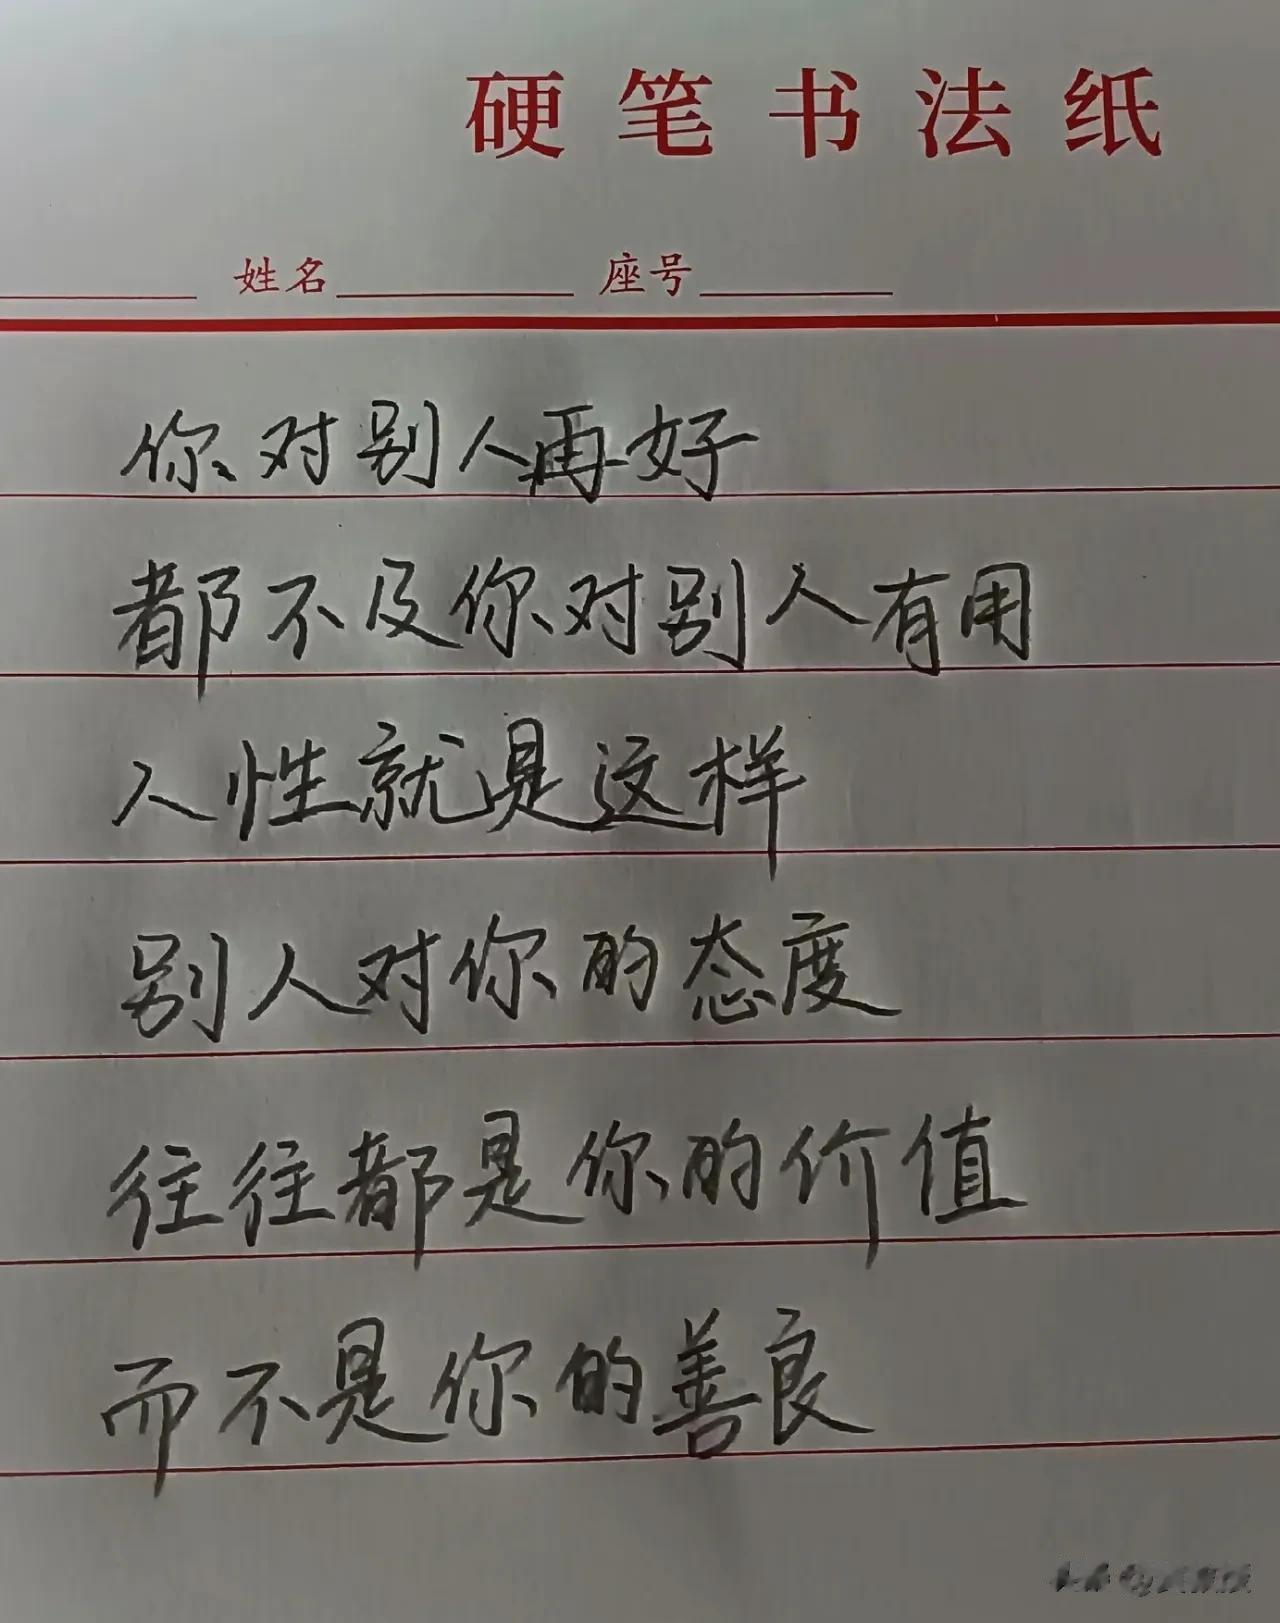 硬笔书法纸
姓名 座号
你对别人再好
都不及你对别人有用
人性就是这样
别人对你的态度
往往都是你的价值
而不是你的善良
头条